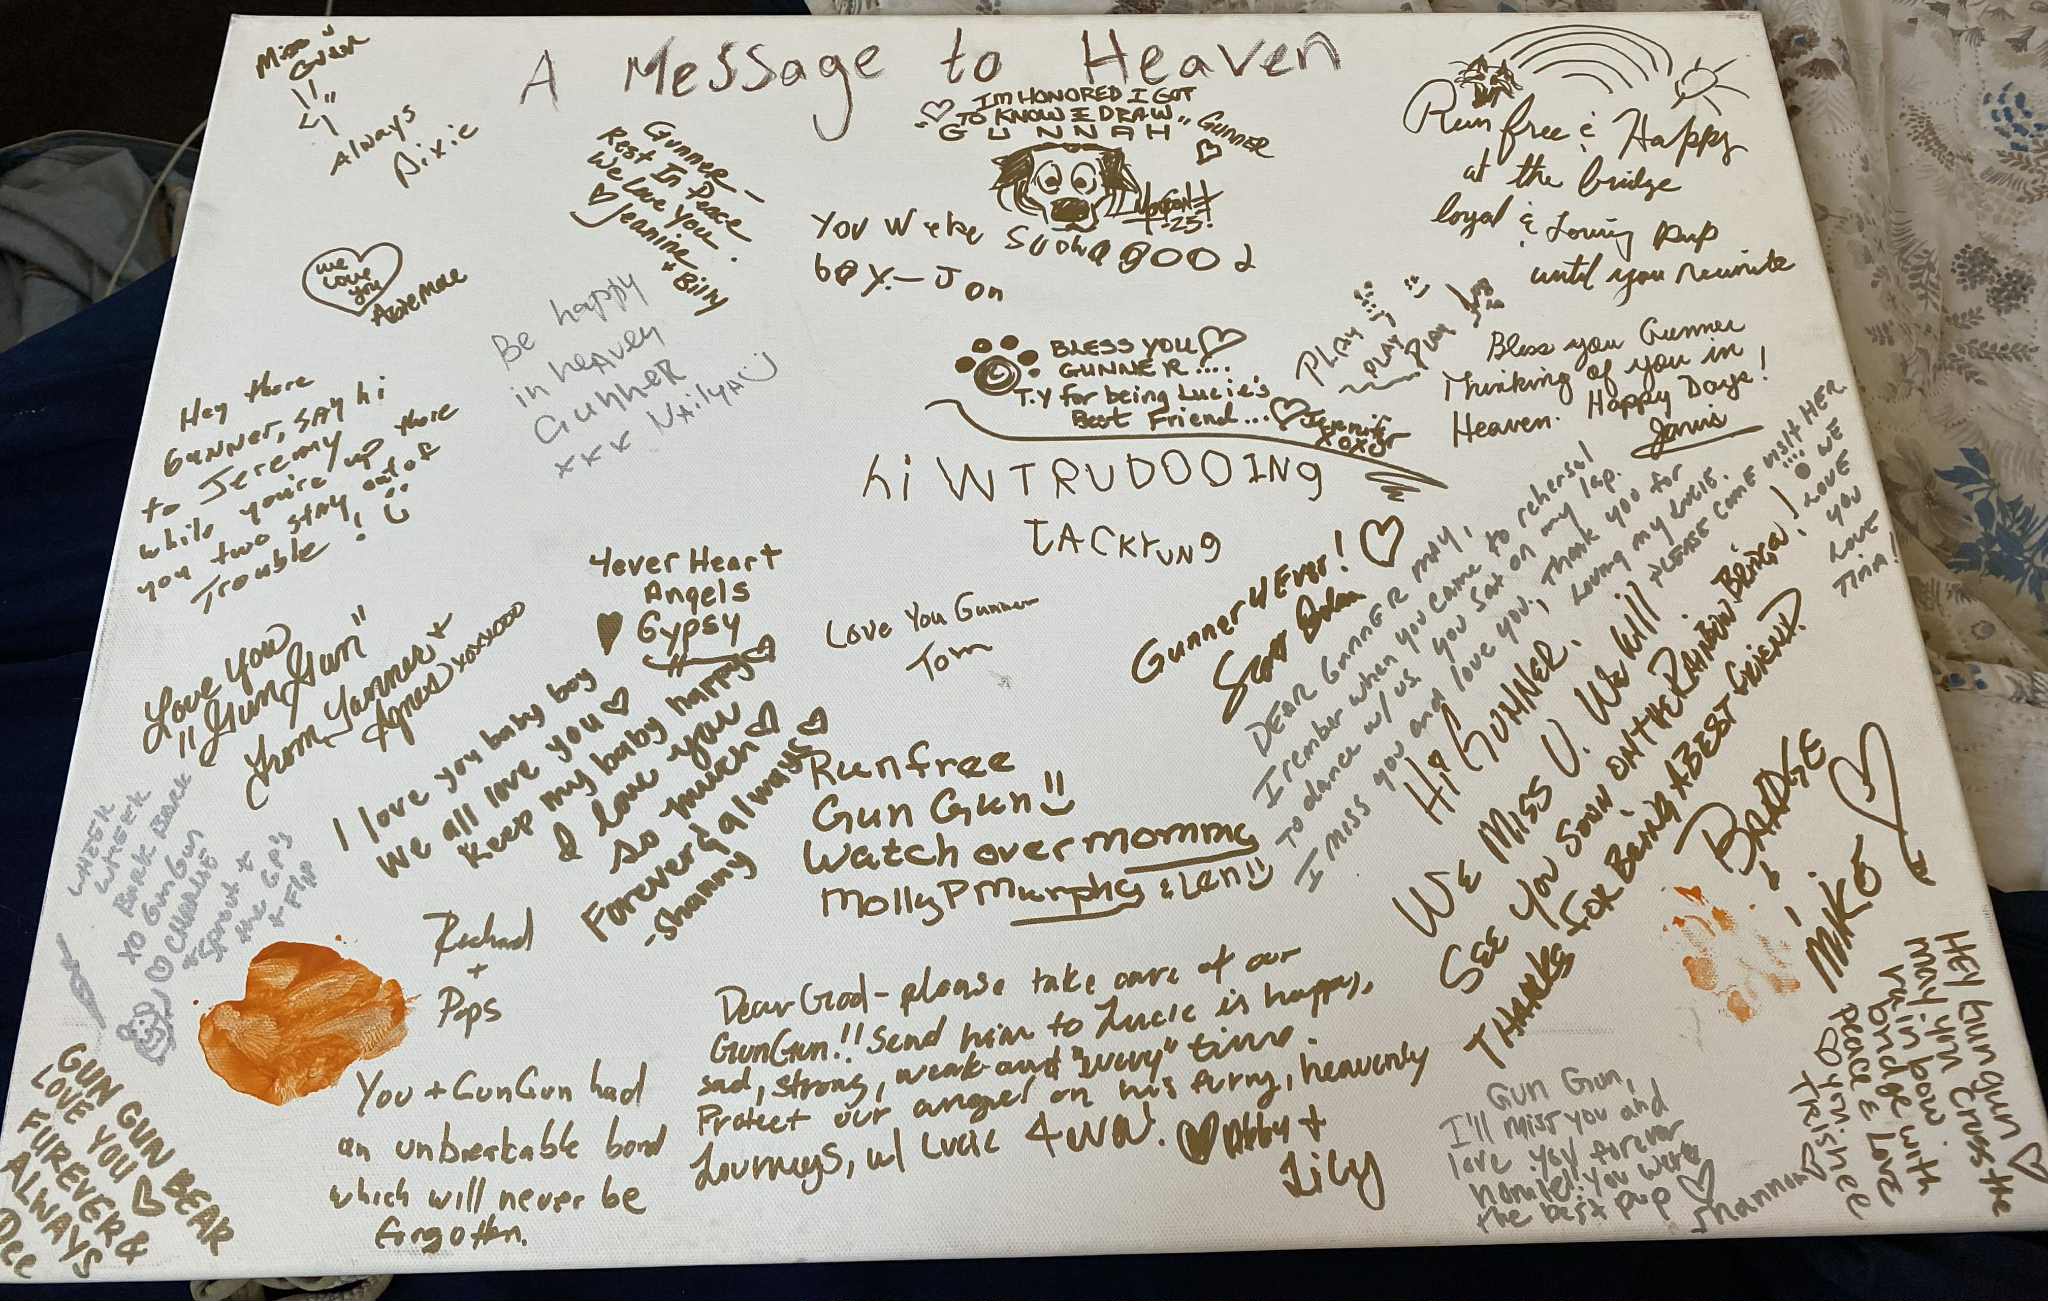 A Message to Heaven
Miss
Always
Dixie
Gunner –
Rest In Peace
We love you.
Jeanine
+ Billy
I'M HONORED I GOT
TO KNOW & DRAW
"GUNNAH"
GUNNER
25
You were such a good
boy. – Jon
Run free & Happy
at the bridge
loyal & Loving pup
until you reunite
We
Love
you
Be happy
in heaven
Gunner
xxx Nailya
BLESS YOU
GUNNER....
T.Y for being Lucie's
Best Friend...
PLAY
PLAY
PLAY
Bless you Gunner
Thinking of you in
Heaven. Happy Days!
Janis
Hey there
Gunner, say hi
to Jeremy
while you're up there
you two stay out of
Trouble!
hi WTRUDOOING
IACKYUNG
4ever Heart
Angels
Gypsy
Love You Gunner
Tom
Gunner 4 Ever!
DEAR GUNNER MAY,
I remember when you came to rehersal
TO dance w/ us. you sat on my lap.
I miss you and love you. Thank you for
Loving my Lucie.
PLEASE COME VISIT HER
!!! WE
LOVE
YOU
LOVE
TINA!
Love You
"Gun Gun"
From Tanner +
Agnes xoxxooo
I love you baby boy
We all love you
Keep my baby happy
I love you
so much
Forever & always
-Shanny
Run free
Gun Gun
Watch over mommy
Molly P Murphy & Len
Hi GUNNER.
WE MISS U. WE WILL
SEE YOU SOON ON THE RAINBOW BRIDGE!
THANKS FOR BEING A BEST FRIEND.
BRIDGE
MIKE
WHEEK
WHEEK
BARK BARK
XO Gun Gun
CHARLIE
+ Sprout +
the G.P's
+ Flip
Richard
+
Pops
You + GunGun had
an unbreakable bond
which will never be
forgotten.
Dear God – please take care of our
GunGun!! Send him to Lucie is happy,
sad, strong, weak and "every" time.
Protect our angel on his furry, heavenly
Journeys, w/ Lucie 4 WVN!
Abby +
Lily
GUN GUN BEAR
LOVE YOU
FUREVER &
ALWAYS
Dee
Gun Gun,
I'll miss you and
love you forever
homie! you were
the best pup
Shannon
HEY gungun
may you cross the
rainbow
bridge with
peace & love
TRISH